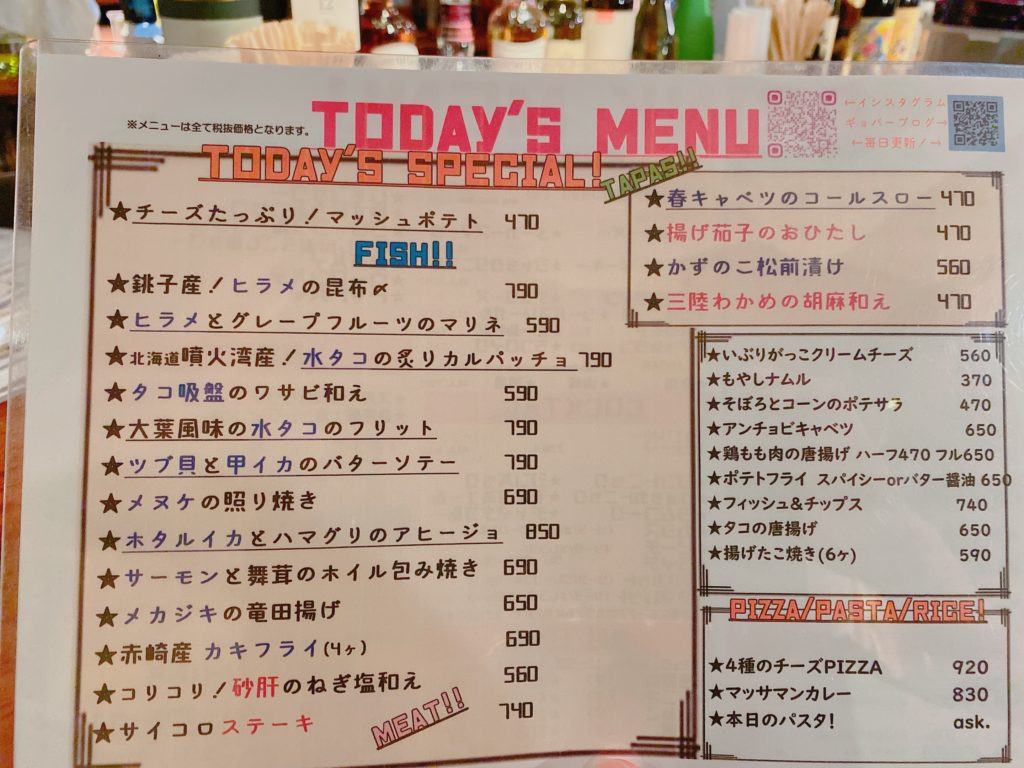 ※メニューは全て税抜価格となります。
TODAY'S MENU
←インスタグラム
ギョバーブログ→
←毎日更新！→
TODAY'S SPECIAL!
★チーズたっぷり！マッシュポテト 470
FISH!!
★銚子産！ヒラメの昆布〆 790
★ヒラメとグレープフルーツのマリネ 590
★北海道噴火湾産！水タコの炙りカルパッチョ 790
★タコ吸盤のワサビ和え 590
★大葉風味の水タコのフリット 790
★ツブ貝と甲イカのバターソテー 790
★メヌケの照り焼き 690
★ホタルイカとハマグリのアヒージョ 850
★サーモンと舞茸のホイル包み焼き 690
★メカジキの竜田揚げ 650
★赤崎産 カキフライ(4ヶ) 690
★コリコリ！砂肝のねぎ塩和え 560
MEAT!!
★サイコロステーキ 740
TAPAS!!
★春キャベツのコールスロー 470
★揚げ茄子のおひたし 470
★かずのこ松前漬け 560
★三陸わかめの胡麻和え 470
★いぶりがっこクリームチーズ 560
★もやしナムル 370
★そぼろとコーンのポテサラ 470
★アンチョビキャベツ 650
★鶏もも肉の唐揚げ ハーフ470 フル650
★ポテトフライ スパイシーorバター醤油 650
★フィッシュ＆チップス 740
★タコの唐揚げ 650
★揚げたこ焼き(6ヶ) 590
PIZZA/PASTA/RICE!
★4種のチーズPIZZA 920
★マッサマンカレー 830
★本日のパスタ！ ask.